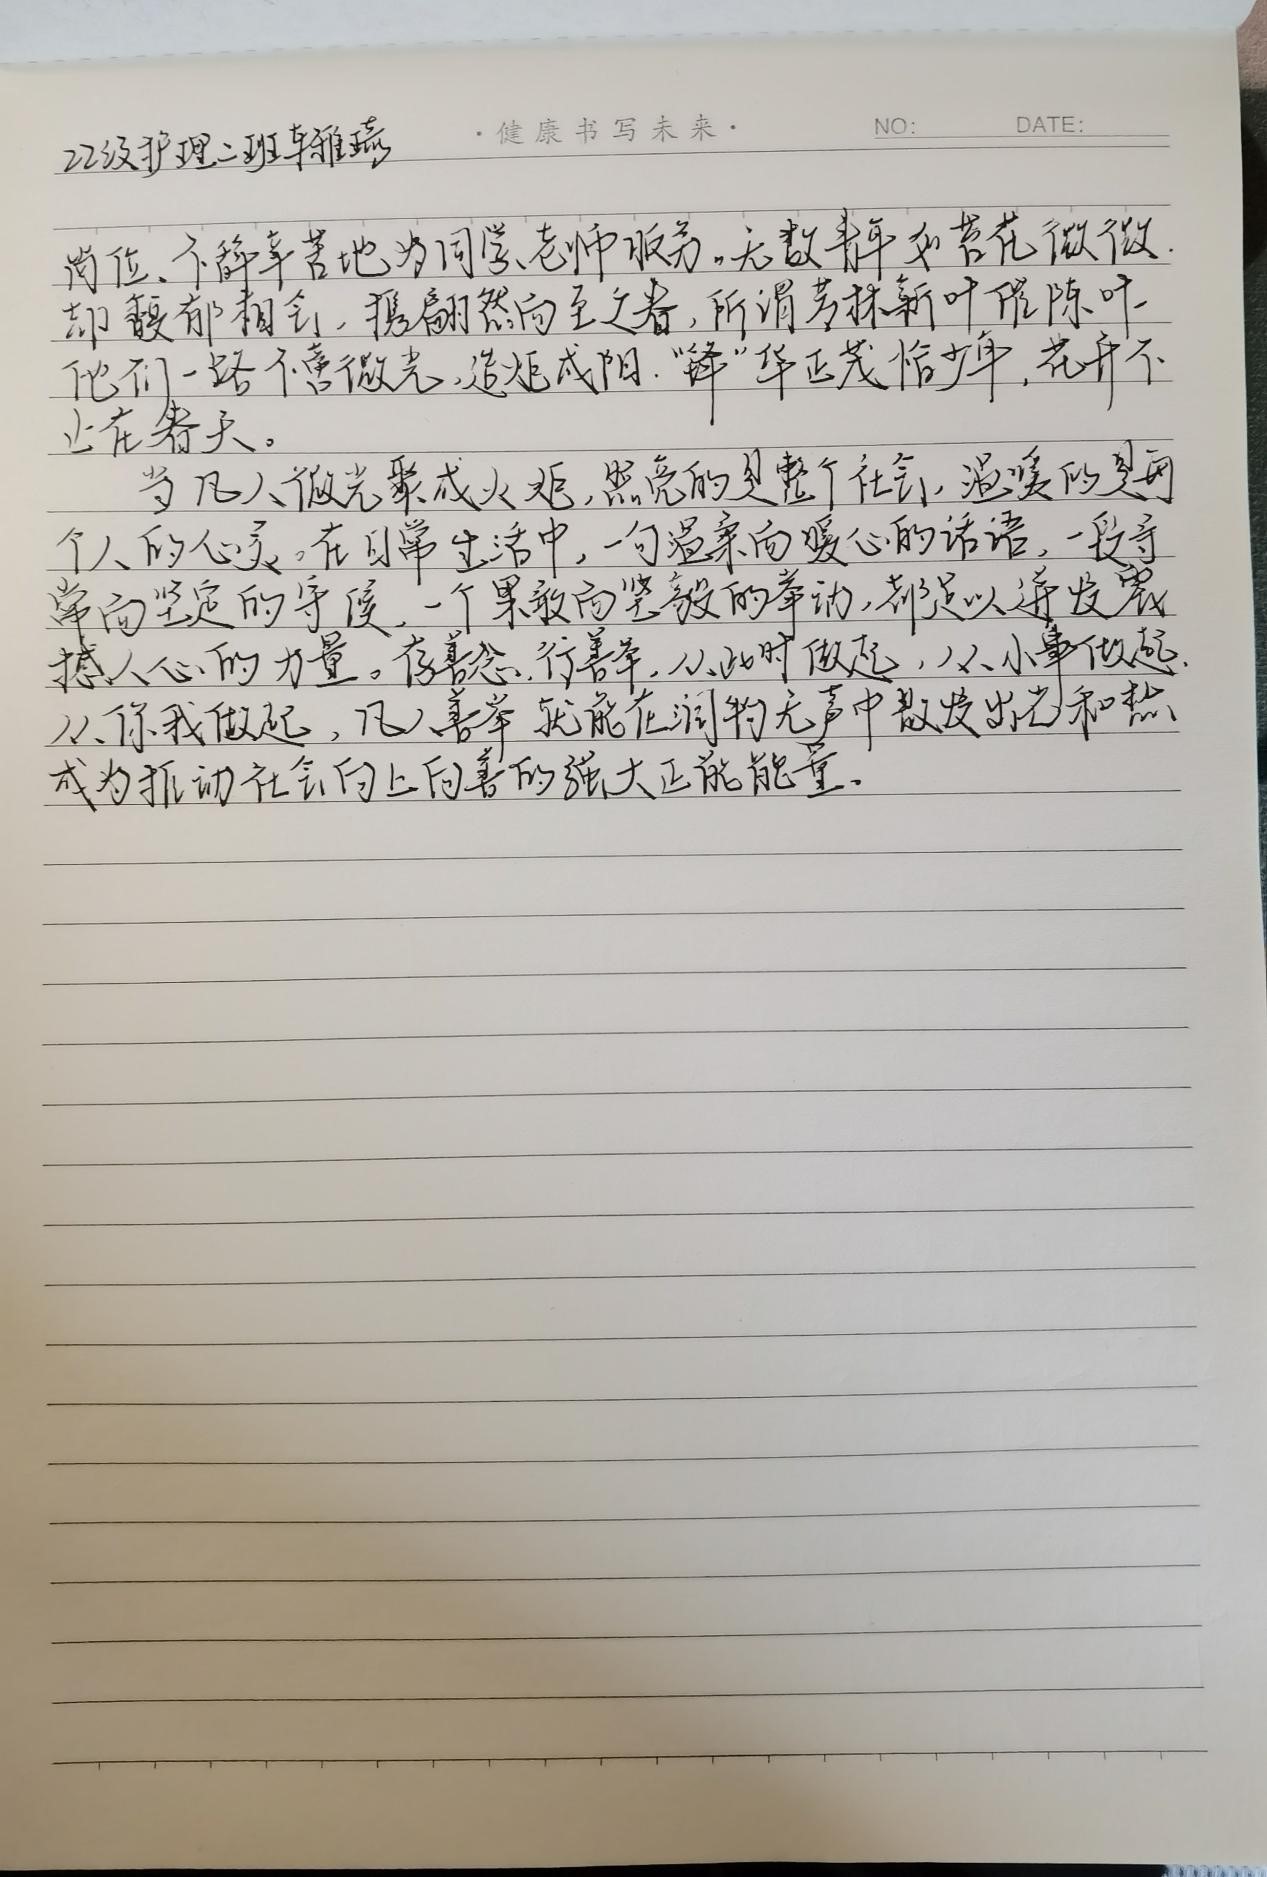 ·健康书写未来·
NO: DATE:
22级护理二班车雅琦
岗位、不辞辛苦地为同学、老师服务。无数青年如苔花微微.
却馥郁相会,携翩然而至之春,所谓芳林新叶催陈叶
他们一路不啬微光,造炬成阳."锋"华正茂恰少年,花开不
止在春天。
当凡人微光聚成火炬,照亮的是整个社会,温暖的是每
个人的心灵。在日常生活中,一句温柔而暖心的话语,一段寻
常而坚定的守候,一个果敢而坚毅的举动,都足以迸发震
撼人心的力量。存善念、行善举,从此时做起,从小事做起、
从你我做起,凡人善举就能在润物无声中散发出光和热
成为推动社会向上向善的强大正能能量。